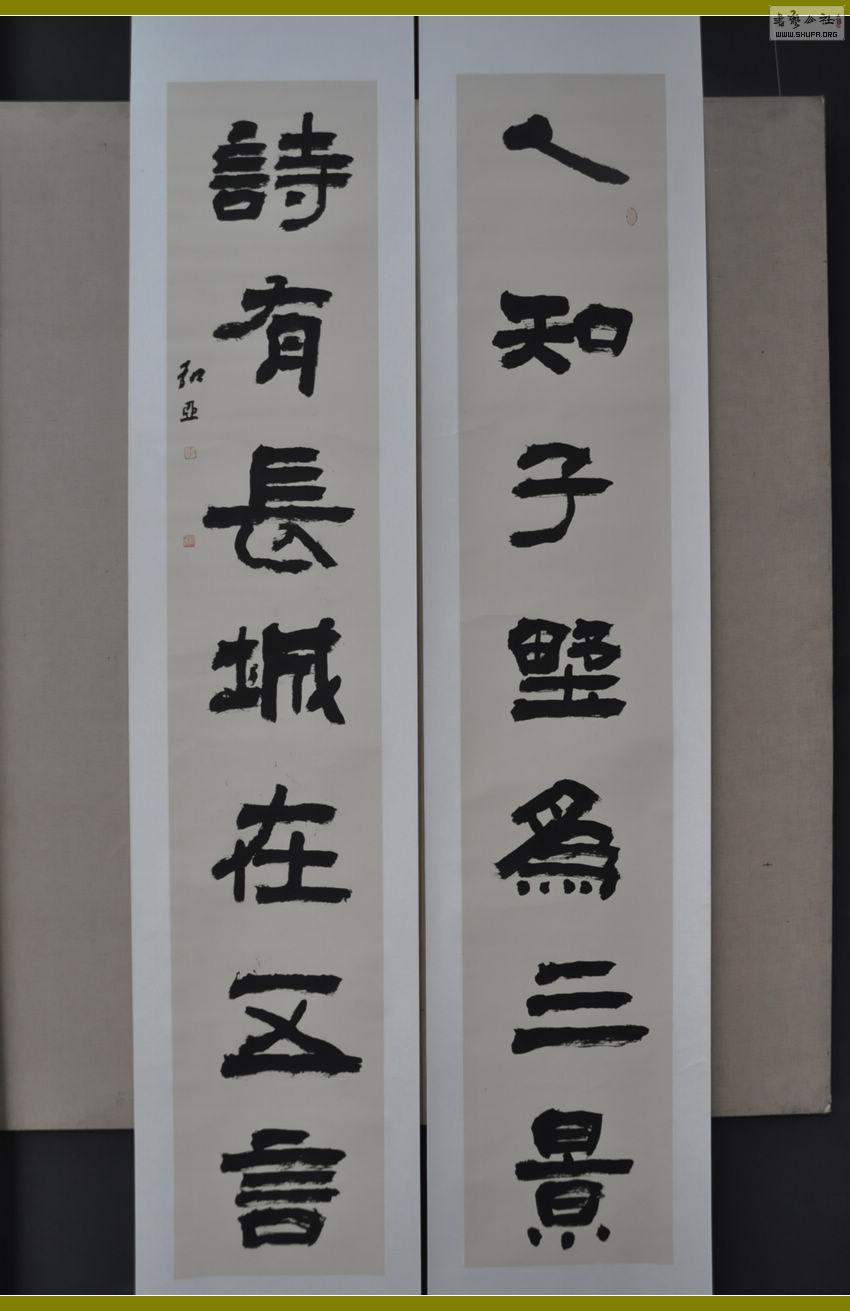 人知子野爲三景
詩有長城在五言
弘亞
書法公社
WWW.SHUFA.ORG